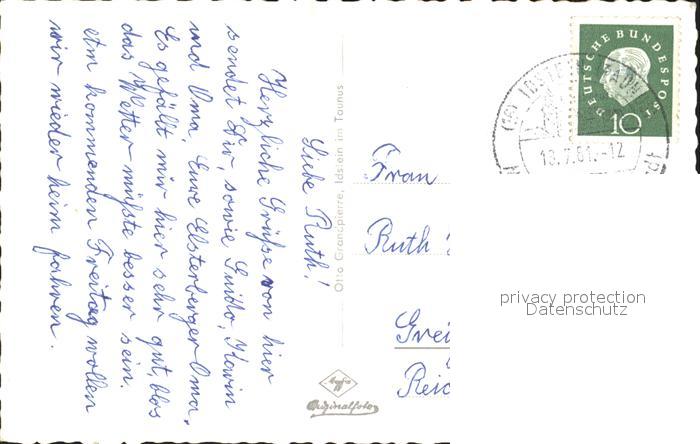 Liebe Ruth!
Herzliche Grüße von hier
sendet Dir, sowie Guido, Kevin
und Oma, Euve Elsterberger Oma.
Es gefällt mir hier sehr gut, blos
das Wetter müßte besser sein.
etm kommenden Freitag wollen
wir wieder heim fahren.
Otto Grandpierre, Idstein im Taunus
Frau
Ruth
Grei
Reic
Agfa
Originalfoto
DEUTSCHE BUNDESPOST
10
(16) IDSTEIN
18.7.61.-12
privacy protection
Datenschutz